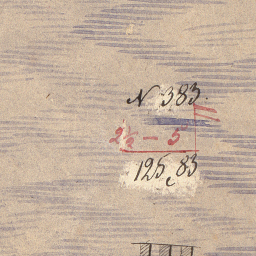 N 383
2½ — 5
125,83